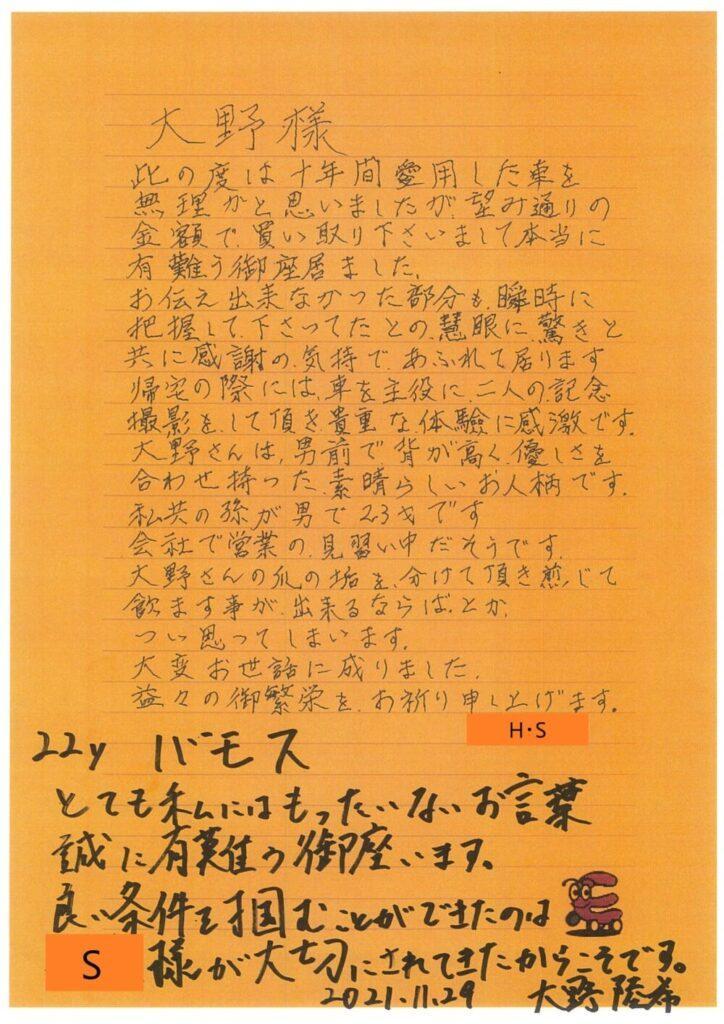 大野様
此の度は十年間愛用した車を
無理かと思いましたが、望み通りの
金額で、買い取り下さいまして本当に
有難う御座居ました、
お伝え出来なかった部分も、瞬時に
把握して、下さってたとの、慧眼に、驚きと
共に感謝の、気持で、あふれて居ります
帰宅の際には、車を主役に、二人の、記念
撮影を、して頂き貴重な、体験に感激です。
大野さんは、男前で背が高く、優しさを
合わせ持った、素晴らしいお人柄です。
私共の孫が男で23才です
会社で営業の、見習い中だそうです。
大野さんの爪の垢を、分けて頂き煎じて
飲ます事が、出来るならば、とか、
つい思ってしまいます。
大変お世話に成りました。
益々の御繁栄を、お祈り申し上げます。
H・S
22y バモス
とても私にはもったいないお言葉
誠に有難う御座います。
良い条件を掴むことができたのは
S 様が大切にされてきたからこそです。
2021.11.29 大野 陸希